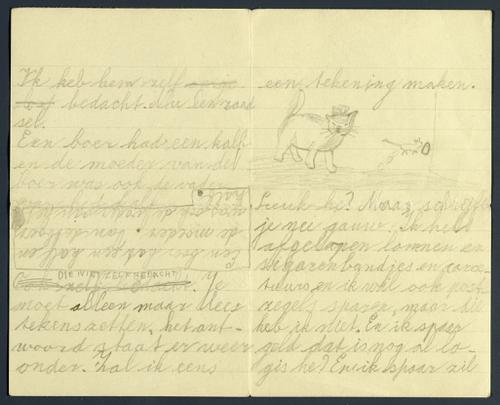 Ik heb hem zelf
bedacht. Nu een raad
sel.
Een boer had een kalf
en de moeder van de
boer was ook de vader
DIE NIET ZELF BEDACHT
Je
moet alleen maar lees
tekens zetten, het ant-
woord staat er weer
onder. Zal ik eens
een tekening maken.
Leuk he? Maar schrijf
je gauw. Ik heb
afgelopen en
sigarenbandjes en
en ik wil ook post
zegels sparen, maar die
heb ik niet. En ik spaar
geld dat is nog al lo-
gis he? En ik spaar zil